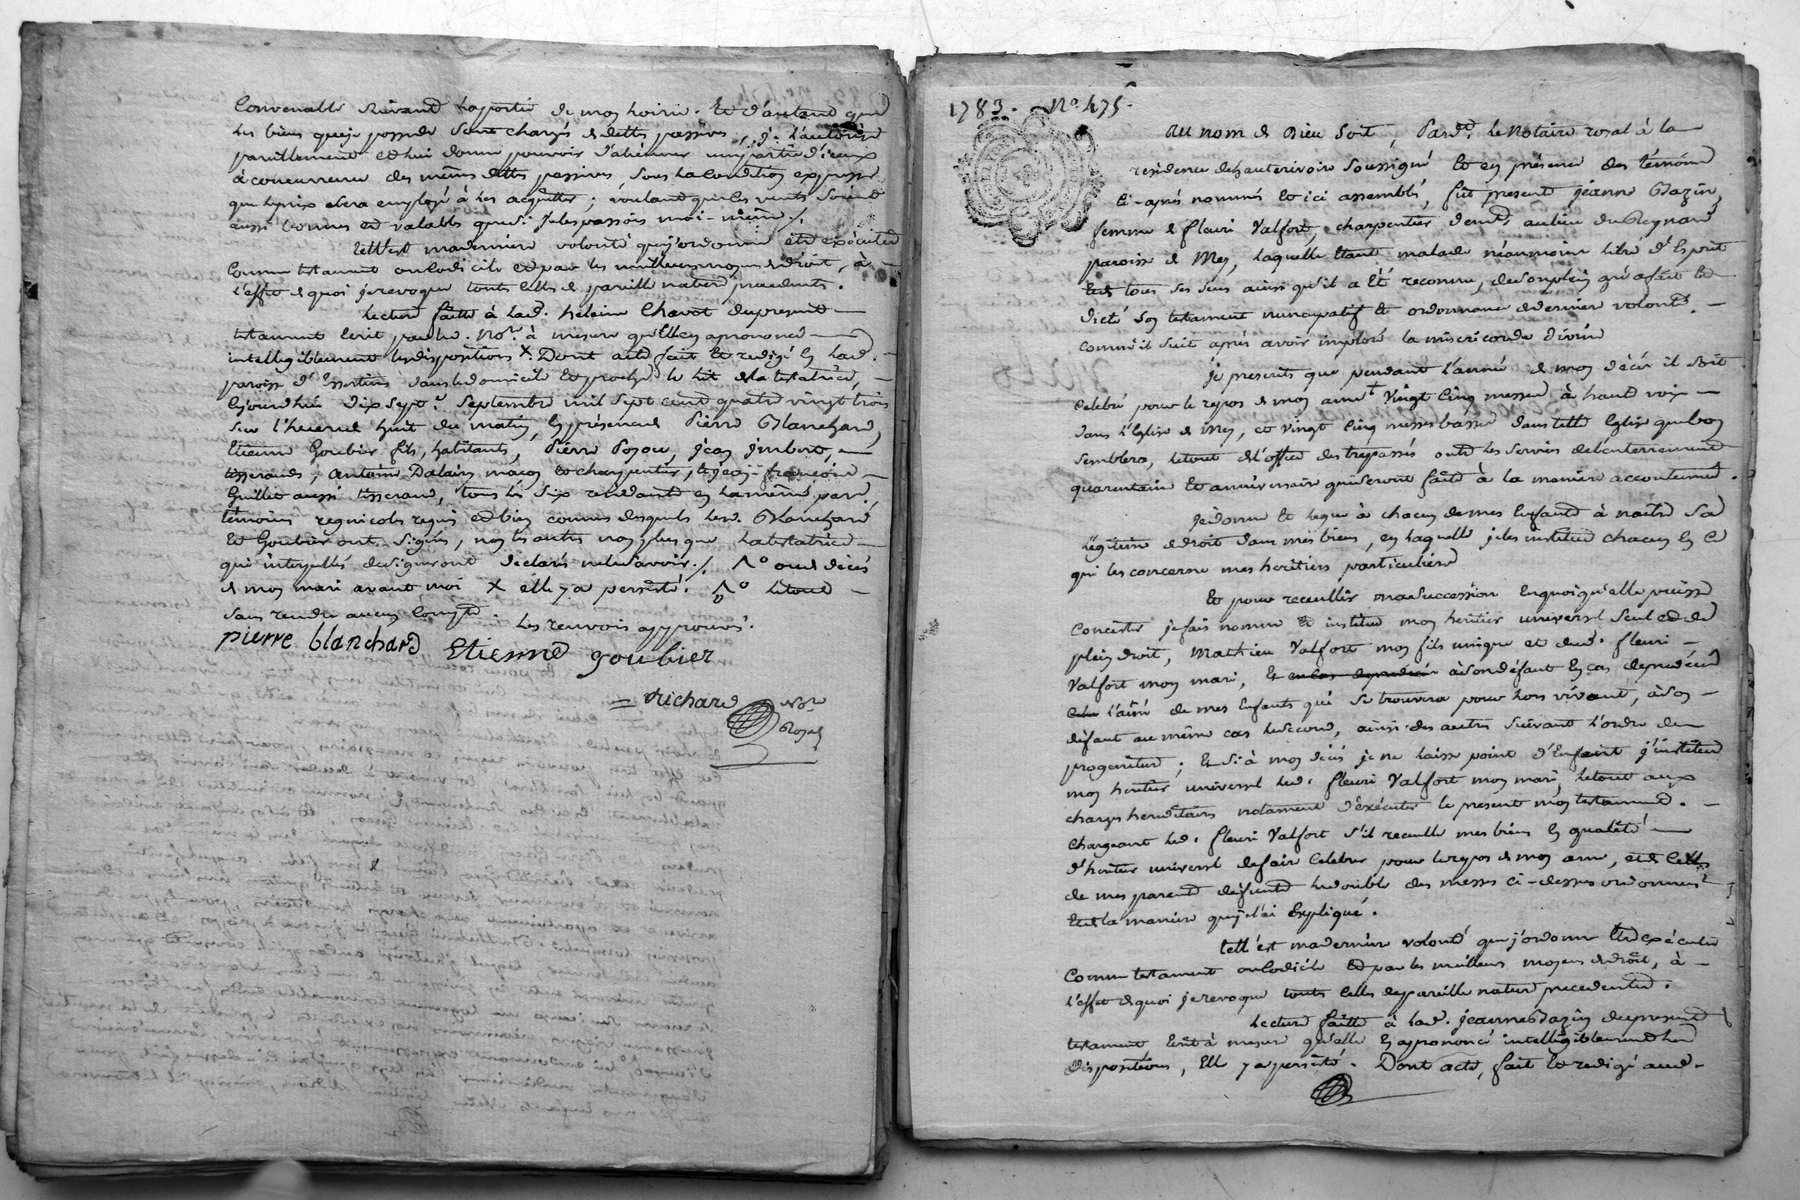 Convenable suivant la portée de mon hoirie. Et d'autant que
les biens que je possede sont chargés de dettes passives, je l'autorise
pareillement et lui donne pouvoir d'aliéner une partie d'iceux
à concurrence des mêmes dettes passives, sous la condition expresse
que le prix en sera employé à les acquitter; voulant que les ventes soient
aussi bonnes et valables que si je les passois moi-même ./.
Telle est ma derniere volonté que j'ordonne être exécutée
Comme testament ou codicile et par les meilleurs moyens de droit, à
l'effet de quoi je revoque touts ceux de pareille nature precedents.
Lecture faitte à lad. heleine Chavot du present
testament ecrit par led. No.re à mesure qu'elle en a prononcé
intelligiblement les dispositions X. Dont acte fait et redigé en lad.
paroisse d'Essertines dans le domicile et proche le lit de la testatrice,
cejourdhui dix sept.e septembre mil sept cent quatre vingt trois
sur l'heure de huit du matin, en présence de Pierre Blanchard,
Etienne Goubier fils, habitants, Pierre jean jmbert,
tisserands, antoine Dalain maçon et charpentier, et françois
Guillet aussi tisserand, tous les six residants en la même par.
témoins regnicoles requis et bien connus desquels lesd. Blanchard
et Goubier ont signés, non les autres non plus que la testatrice
qui interpellés de signer ont déclarés ne le savoir ./. 1° ou de décés
de mon mari avant moi X elle y a persisté. 1° le tout
sans rendre aucun compte. Les renvois approuvés.
pierre blanchard Etienne goubier
Richard No.re
Royal
1783. No. 475.
Au nom de Dieu soit Pard.t le Notaire royal à la
résidence de hauterivoire soussigné et en présence des témoins
ci-aprés nommés et ici assemblés, fût present jeanne Bazin
femme de fleuri Valfort, charpentier dem.t au lieu du Reynard
paroisse de Mey, laquelle étant malade néanmoins libre d'Esprit
et de tous ses sens ainsi qu'il a Eté reconnu, de son plein gré a fait et
dicté son testament nuncupatif et ordonnance de derniere volonté
comme il suit aprés avoir imploré la misericorde divine
je prescrits que pendant l'année de mon décés il soit
celebré pour le repos de mon ame Vingt cinq messes à haute voix
dans l'Eglise de Mey, et vingt cinq messes basses dans telle Eglise que bon
semblera, le tout de l'office des trepassés outre les services de l'enterrement
quarantaine et anniversaire qui seront faits à la maniere accoutumée.
je donne et legue à chacun de mes Enfants à naitre sa
légitime de droit dans mes biens, en laquelle je les institue chacun en ce
qui les concerne mes heritiers particuliers
Et pour recueillir ma succession en quoi qu'elle puisse
consister je fais nomme et institue mon heritier universel seul et de
plein droit, Mathieu Valfort mon fils unique et dud. fleuri
Valfort mon mari, et en cas de predécés à son défaut en cas de predécés
l'aîné de mes Enfants qui se trouvera pour lors vivant, à son
défaut au même cas le second, ainsi des autres suivant l'ordre de
progeniture; et si à mon décés je ne laisse point d'Enfant j'institue
mon heritier universel led. fleuri Valfort mon mari, le tout aux
charges hereditaires notament d'exécuter le present mon testament.
Chargeant led. fleuri Valfort s'il recueille mes biens en qualité
d'heritier universel de faire celebrer pour le repos de mon ame, et de celles
de mes parents défunts le double des messes ci-dessus ordonnées
et de la maniere que je l'ai Expliqué.
Telle est ma derniere volonté que j'ordonne être exécutée
comme testament ou codicile et par les meilleurs moyens de droit, à
l'effet de quoi je revoque touts celles de pareille nature precedentes.
Lecture faitte à lad. jeanne Bazin du present
testament écrit à mesure qu'elle en a prononcé intelligiblement les
dispositions, Elle y a persisté. Dont acte, fait et redigé aud.